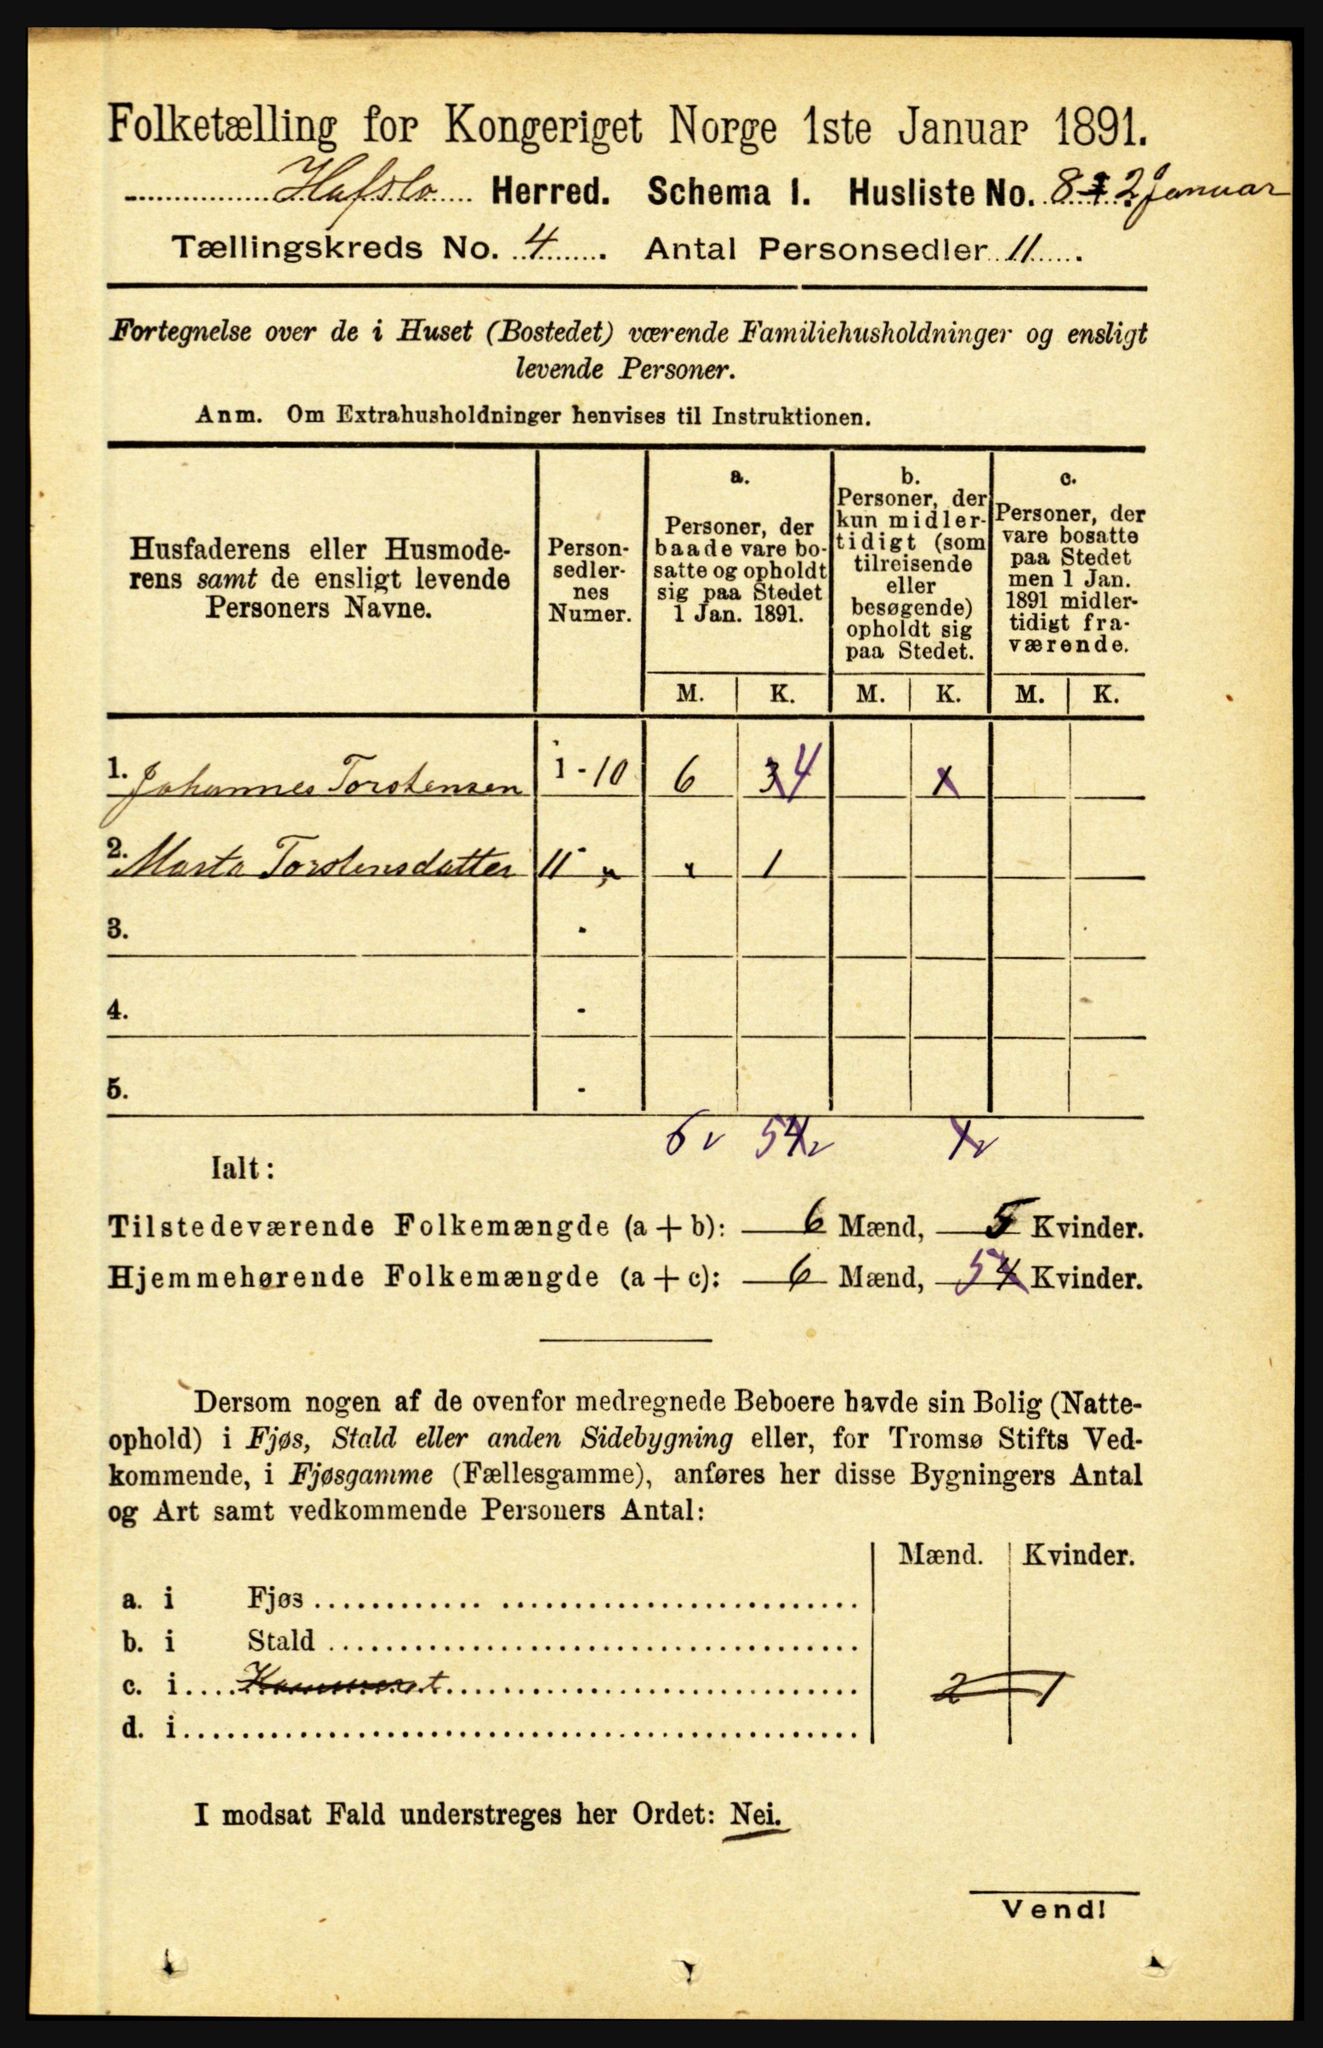 Folketælling for Kongeriget Norge 1ste Januar 1891.
Hafslo Herred. Schema 1. Husliste No. 8 2 Januar
Tællingskreds No. 4. Antal Personsedler 11.
Fortegnelse over de i Huset (Bostedet) værende Familiehusholdninger og ensligt
levende Personer.
Anm. Om Extrahusholdninger henvises til Instruktionen.
Husfaderens eller Husmode-
rens samt de ensligt levende
Personers Navne.
Person-
sedler-
nes
Numer.
a.
Personer, der
baade vare bo-
satte og opholdt
sig paa Stedet
1 Jan. 1891.
b.
Personer, der
kun midler-
tidigt (som
tilreisende
eller
besøgende)
opholdt sig
paa Stedet.
c.
Personer, der
vare bosatte
paa Stedet
men 1 Jan.
1891 midler-
tidigt fra-
værende.
M. K. M. K. M. K.
1. Johannes Torstensen 1 - 10 6 3 4 1
2. Marta Torstensdatter 11 - „ x 1
3. -
4. -
5. -
6 5 4 1
Ialt:
Tilstedeværende Folkemængde (a + b): 6 Mænd, 5 Kvinder.
Hjemmehørende Folkemængde (a + c): 6 Mænd, 5 4 Kvinder.
Dersom nogen af de ovenfor medregnede Beboere havde sin Bolig (Natte-
ophold) i Fjøs, Stald eller anden Sidebygning eller, for Tromsø Stifts Ved-
kommende, i Fjøsgamme (Fællesgamme), anføres her disse Bygningers Antal
og Art samt vedkommende Personers Antal:
Mænd. Kvinder.
a. i Fjøs
b. i Stald
c. i 2 1
d. i
I modsat Fald understreges her Ordet: Nei.
Vend!